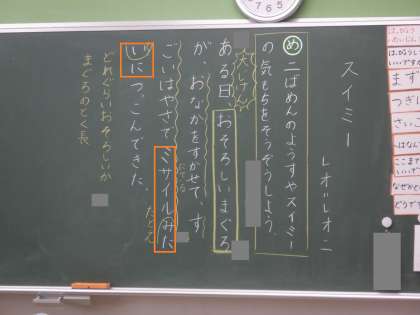 スイミー
レオ=レオニ
め 二ばめんのようすやスイミー
の気もちをそうぞうしよう。
大じけん
ある日、おそろしいまぐろ
が、おなかをすかせて、す
ごいはやさで ミサイルみた
いにつっこんできた。
たとえ
どれぐらいおそろしいか
まぐろのとく長